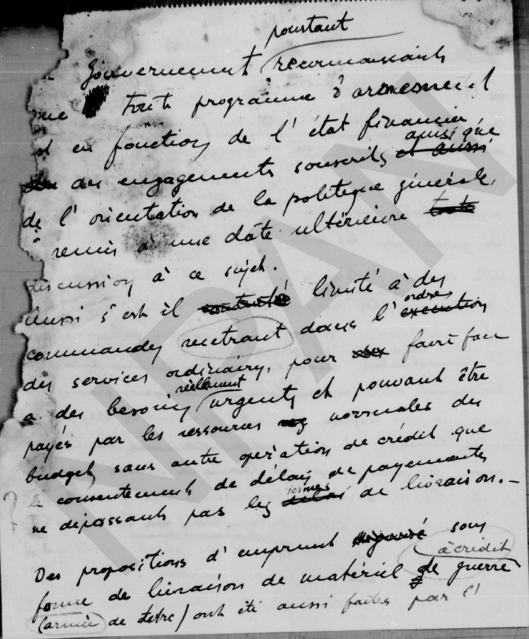 pourtant
Gouvernement reconnaissait
que tout programme d'armement
est en fonction de l'état financier
ainsi que
des engagements souscrits et aussi
de l'orientation de la politique générale,
remis à une date ultérieure toute
discussion à ce sujet.
Aussi s'est il limité à des
ordres
commandes rentrant dans l'execution
des services ordinaires, pour faire face
réellement
a des besoins urgents et pouvant être
payés par les ressources normales des
budgets sans autre opération de crédit que
le consentement de délais de payements
termes
ne dépassant pas les délais de livraison. —
Des propositions d'emprunt sous
à crédit
forme de livraison de matériel de guerre
(armée de terre) ont été aussi faites par l'
NPAN